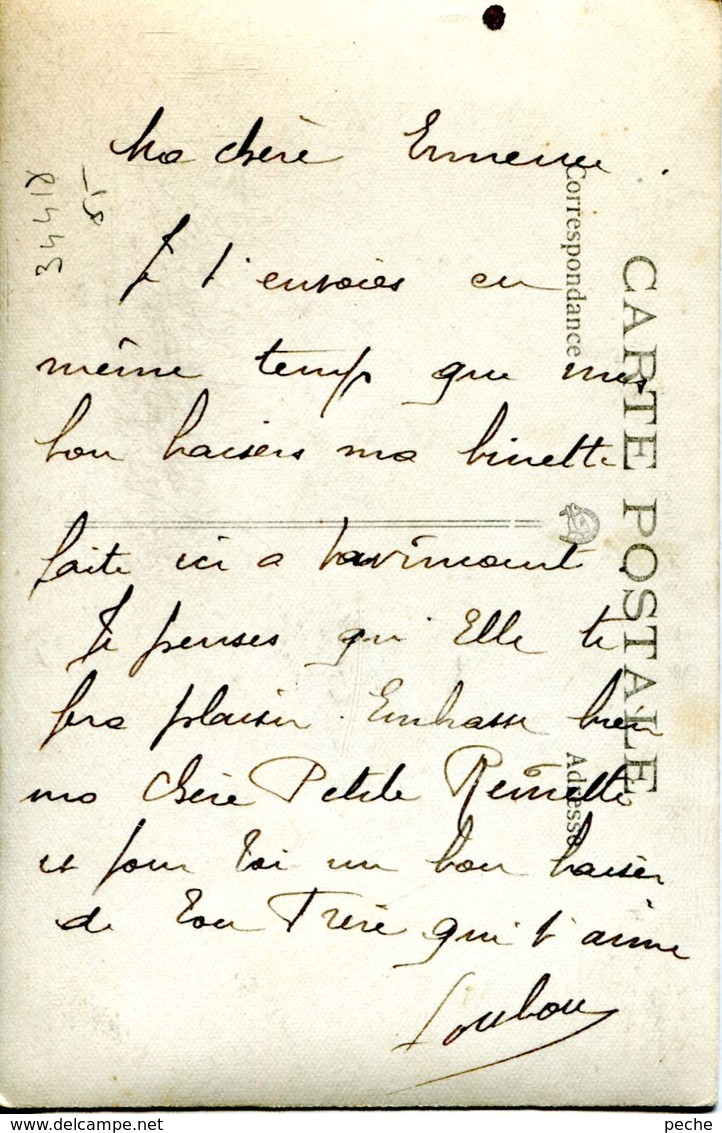 Ma chère
Je t'envoies en
même temp que mes
bon baisers ma binette
faite ici a
Je penses qu'Elle te
fera plaisir. Embrasse bien
ma chère Petite Reinette
et pour toi un bon baiser
de ton Frère qui t'aime
Loubou
CARTE POSTALE
Correspondance
Adresse
34418
peche